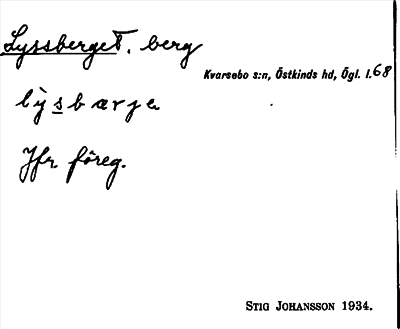 Lyssberget, berg
Kvarsebo s:n, Östkinds hd, Ögl. l. 68
lỳsbærja
Jfr föreg.
STIG JOHANSSON 1934.